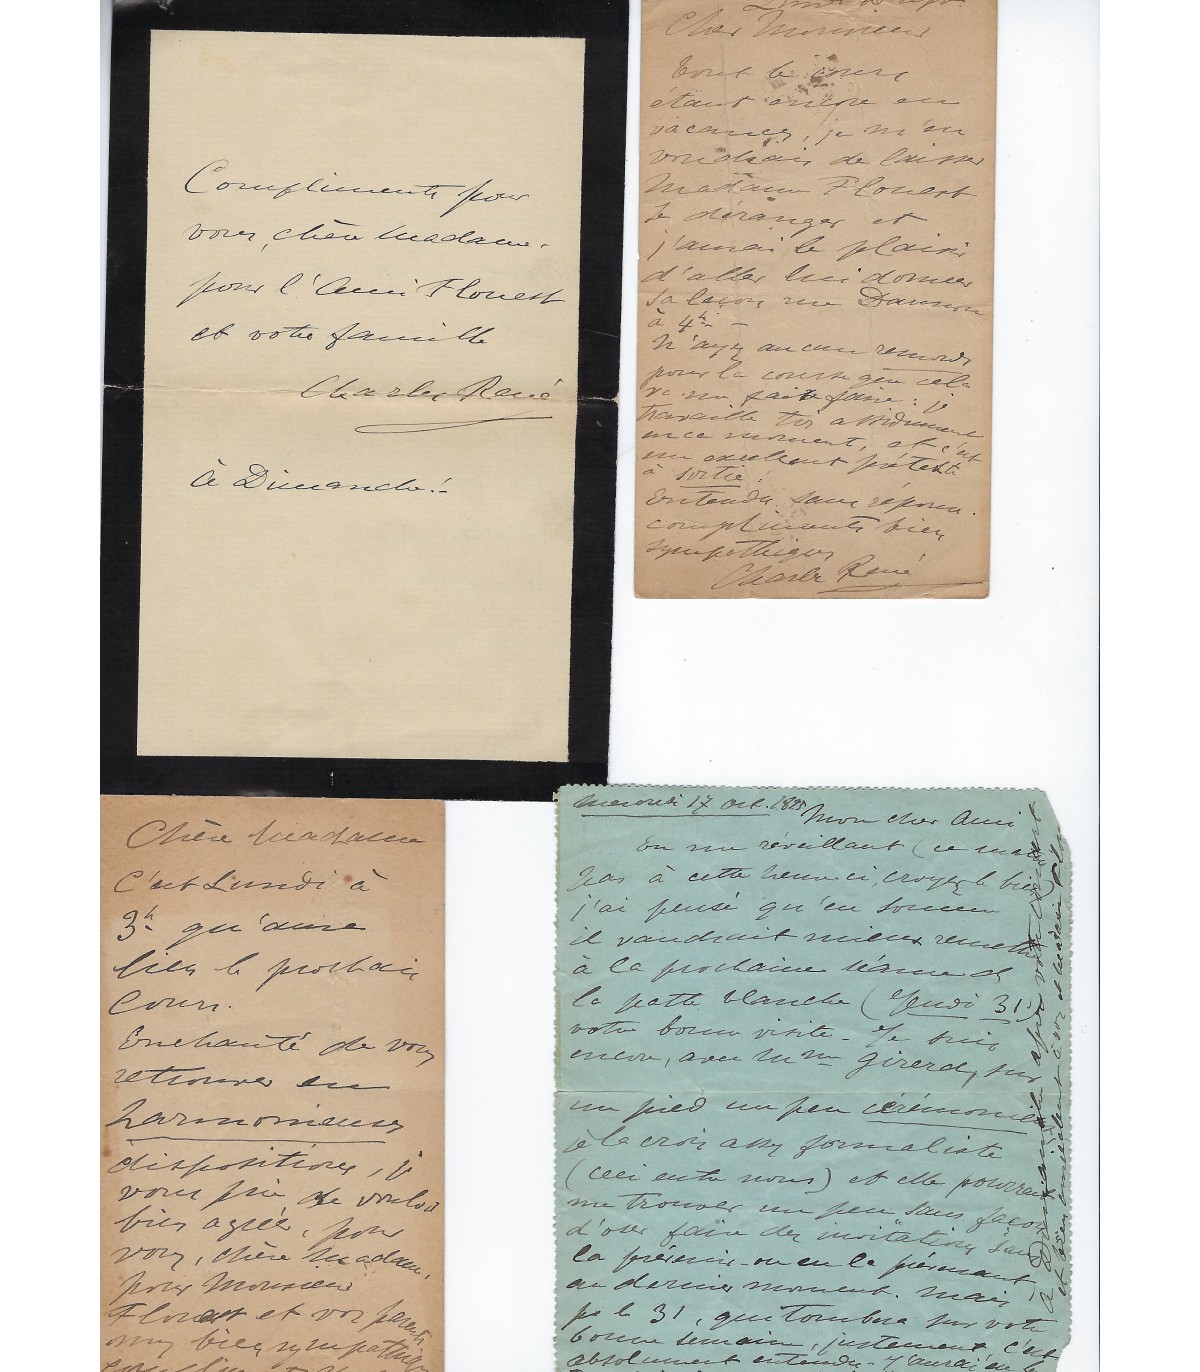 Compliments pour
vous, chère Madame,
pour l'Ami Flouest
et votre famille
Charles René
à Dimanche!
Cher Monsieur
Tout le cours
étant encore en
vacances, je m'en
voudrais de laisser
Madame Flouest
se déranger et
j'aurai le plaisir
d'aller lui donner
sa leçon rue Daunou
à 4h –
N'ayez aucun remords
pour la course que cela
va me faire faire : je
travaille très assidument
en ce moment, et c'est
un excellent prétexte
à sortie!
Entendu sans réponse.
compliments bien
sympathiques
Charles René
Chère Madame
C'est Lundi à
3h qu'aura
lieu le prochain
Cours.
Enchanté de vous
retrouver en
harmonieuses
dispositions, je
vous prie de vouloir
bien agréer, pour
vous, chère Madame,
pour Monsieur
Flouest et vos parents
mes bien sympathiques
Mercredi 17 Oct. 1895
Mon cher Ami
En me réveillant (ce matin
pas à cette heure-ci, croyez le bien)
j'ai pensé qu'en somme
il vaudrait mieux remettre
à la prochaine séance de
la patte blanche (Jeudi 31)
votre bonne visite – Je suis
encore, avec Mme Girerd, sur
un pied un peu cérémonieux
je la crois assez formaliste
(ceci entre nous) et elle pourrait
me trouver un peu sans façon
d'oser faire des invitations sans
la prévenir – ou en la prévenant
au dernier moment. Mais
pr le 31, qui tombera sur votre
bonne semaine, justement, c'est
absolument entendu – J'aurai
à Dimanche après votre
et bien amicalement à vous